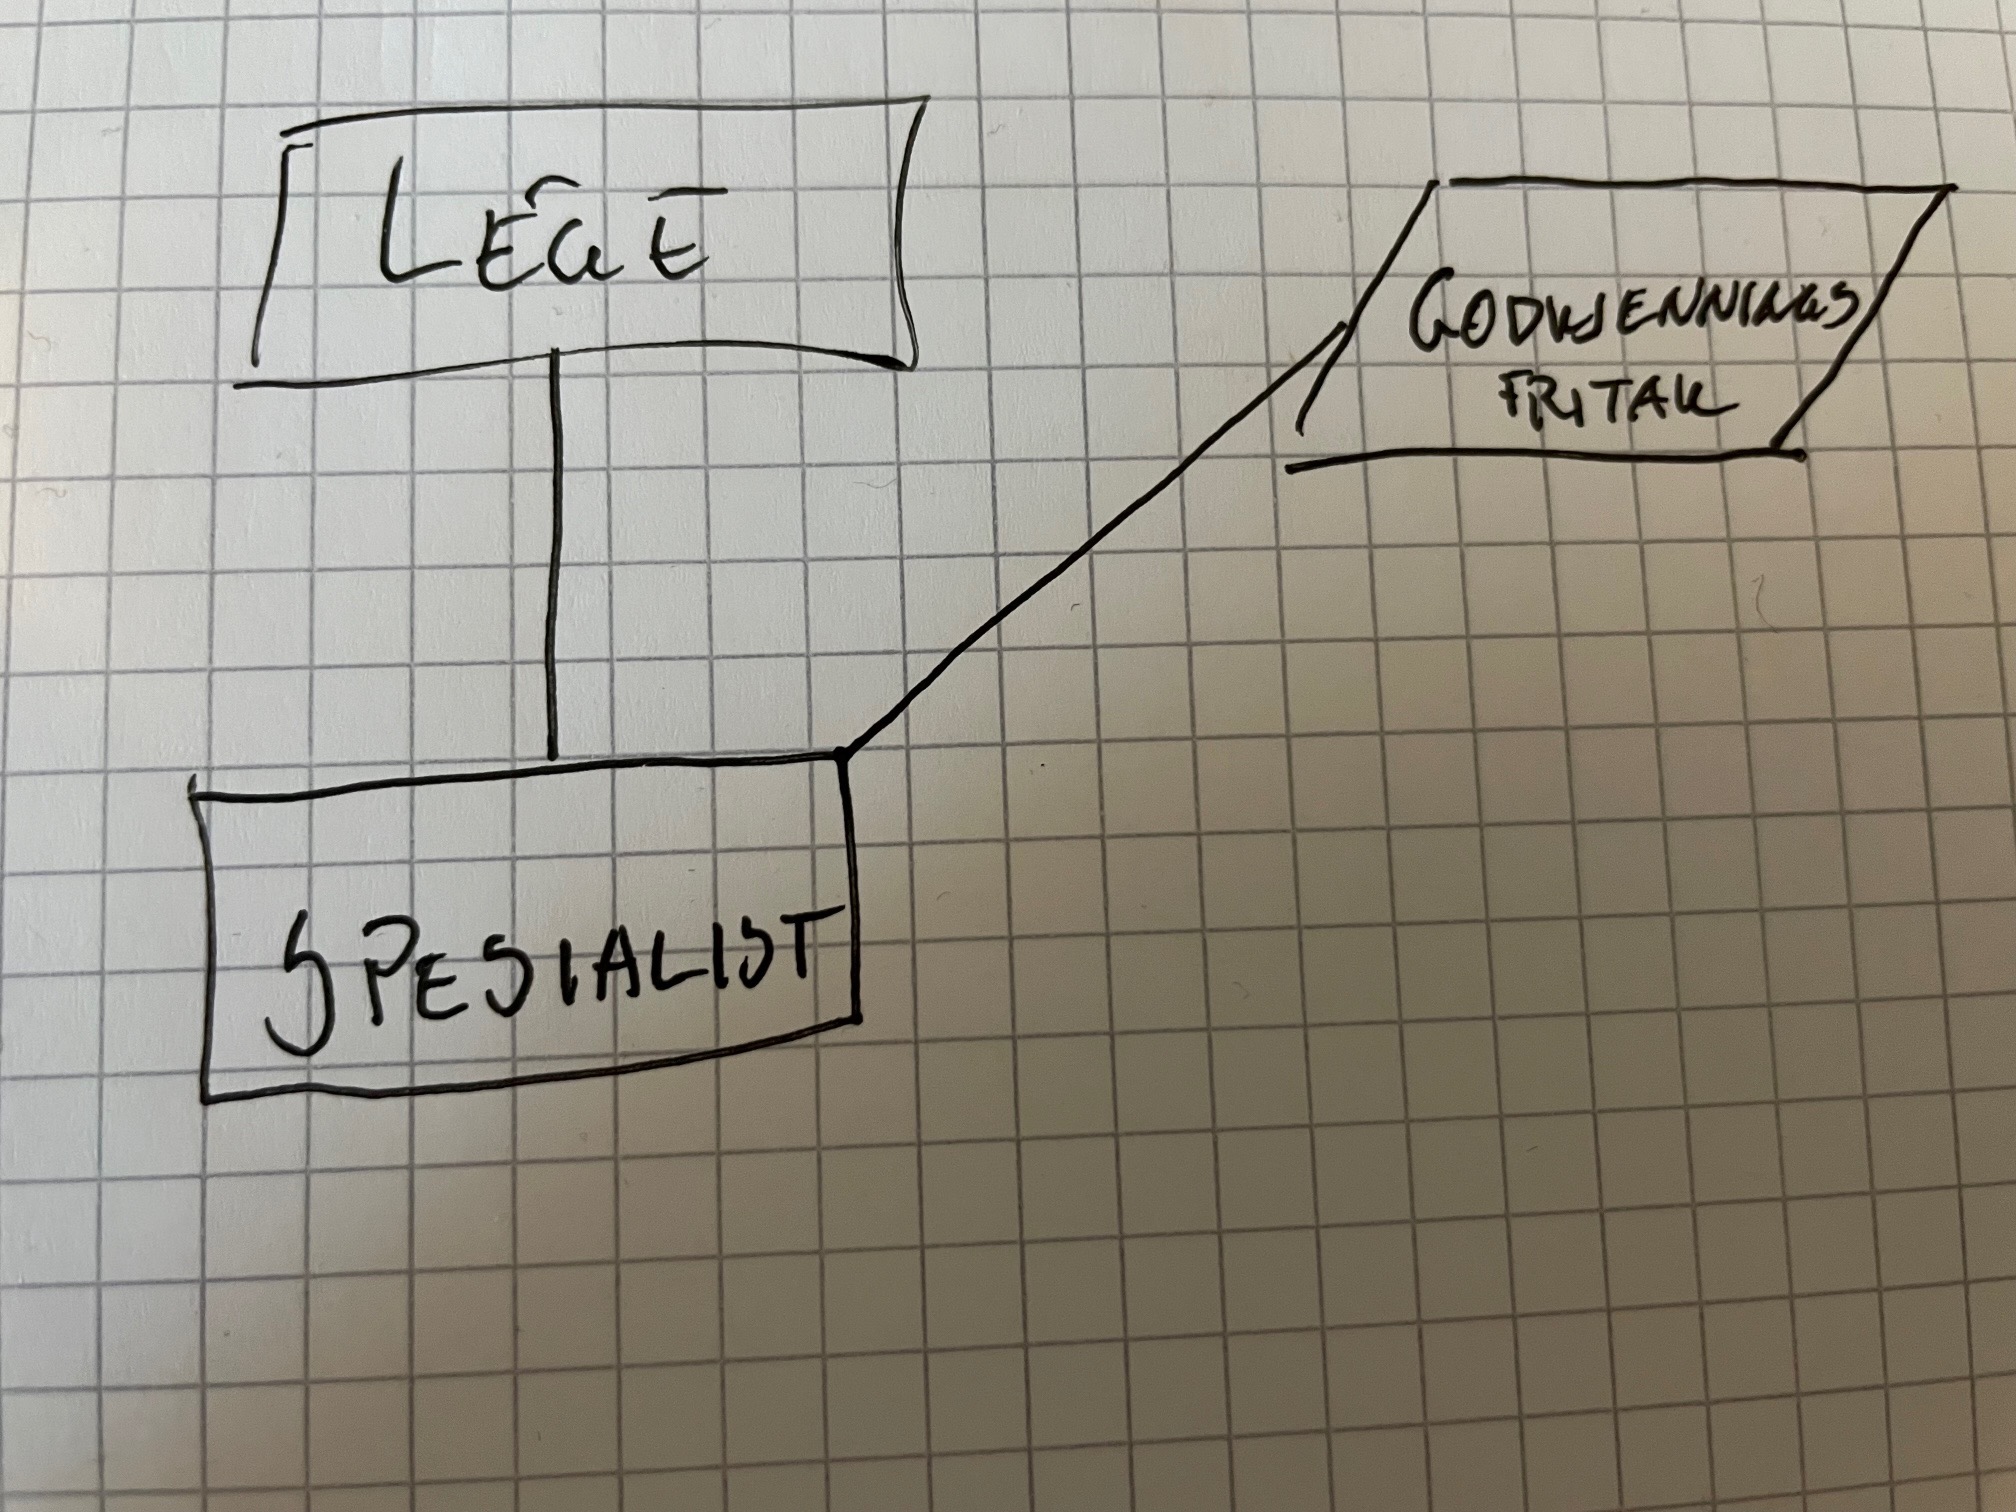 LEGE
GODKJENNINGS
FRITAK
SPESIALIST